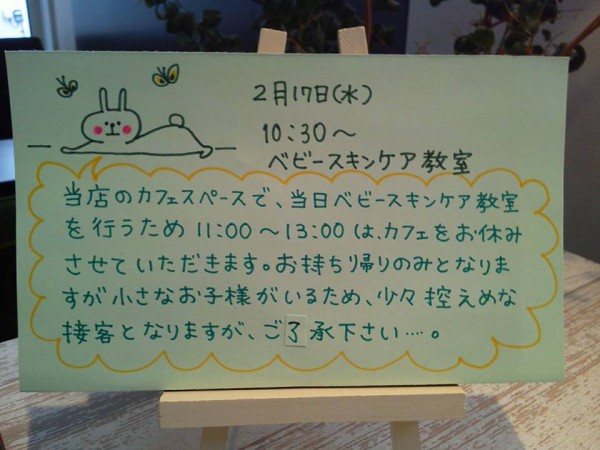 2月17日(水)
10:30〜
ベビースキンケア教室
当店のカフェスペースで、当日ベビースキンケア教室
を行うため 11:00〜13:00 は、カフェをお休み
させていただきます。お持ち帰りのみとなりま
すが小さなお子様がいるため、少々控えめな
接客となりますが、ご了承下さい‥‥。